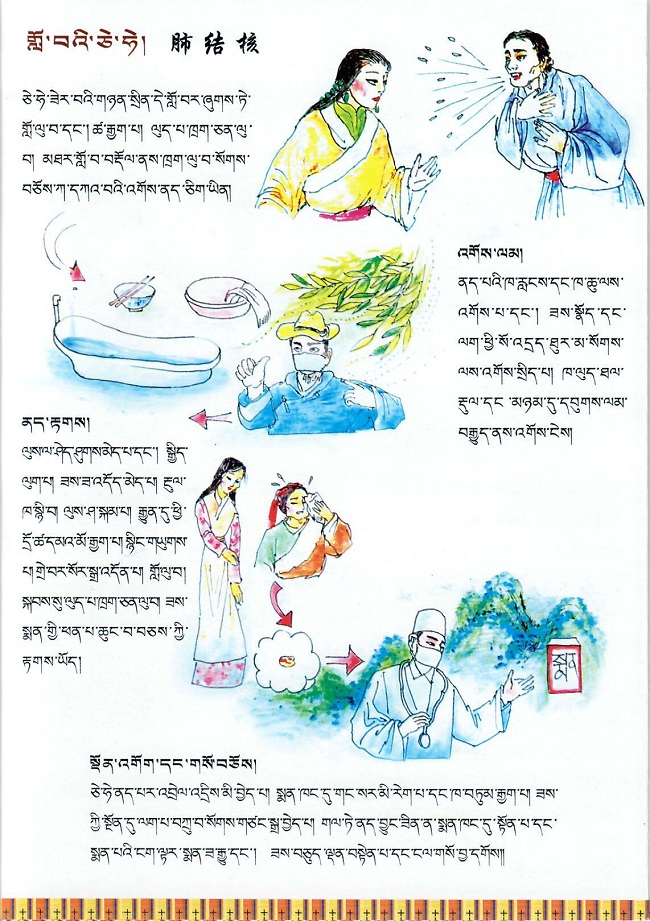 གློ་བའི་ཅེ་ཧེ། 肺结核
ཅེ་ཧེ་ཟེར་བའི་གཉན་སྲིན་དེ་གློ་བར་ཞུགས་ཏེ་
གློ་ལུ་བ་དང་། ཚ་རྒྱག་པ། ལུད་པ་ཁྲག་ཅན་ལུ་
བ། མཐར་གློ་བ་བརྡོལ་ནས་ཁྲག་ལུ་བ་སོགས་
བཅོས་ཀ་དཀའ་བའི་འགོས་ནད་ཅིག་ཡིན།
འགོས་ལམ།
ནད་པའི་ཁ་རླངས་དང་ཁ་ཆུ་ལས་
འགོས་པ་དང་། ཟས་སྣོད་དང་
ལག་ཕྱི་སོ་འདྲད་ཐུར་མ་སོགས་
ལས་འགོས་སྲིད་པ། ཁ་ལུད་ཐལ་
རྡུལ་དང་མཉམ་དུ་དབུགས་ལམ་
བརྒྱུད་ནས་འགོས་ངེས།
ནད་རྟགས།
ལུས་ལ་ཤེད་ཤུགས་མེད་པ་དང་། སྒྱིད་
ལུག་པ། ཟས་ཟ་འདོད་མེད་པ། རྔུལ་
ཁ་སྙི་བ། ལུས་ཤ་སྐམ་པ། རྒྱུན་དུ་ཕྱི་
དྲོ་ཚ་དམའ་མོ་རྒྱག་པ། སྙིང་གཡུགས་
པ། གྲེ་བར་སོར་སྒྲ་འདོན་པ། གློ་ལུ་བ།
སྐབས་སུ་ལུད་པ་ཁྲག་ཅན་ལུ་བ། ཟས་
སྨན་གྱི་ཕན་པ་ཆུང་བ་བཅས་ཀྱི་
རྟགས་ཡོད།
སྨན
སྔོན་འགོག་དང་གསོ་བཅོས།
ཅེ་ཧེ་ནད་པར་འབྲེལ་འདྲིས་མི་བྱེད་པ། སྨན་ཁང་དུ་གང་སར་མི་རེག་པ་དང་ཁ་བཏུམ་རྒྱག་པ། ཟས་
ཀྱི་སྔོན་དུ་ལག་པ་བཀྲུ་བ་སོགས་གཙང་སྦྲ་བྱེད་པ། གལ་ཏེ་ནད་བྱུང་ཟིན་ན་སྨན་ཁང་དུ་སྟོན་པ་དང་
སྨན་པའི་ངག་ལྟར་སྨན་ཟ་རྒྱུ་དང་། ཟས་བཅུད་ལྡན་བསྟེན་པ་དང་ངལ་གསོ་བྱ་དགོས༎